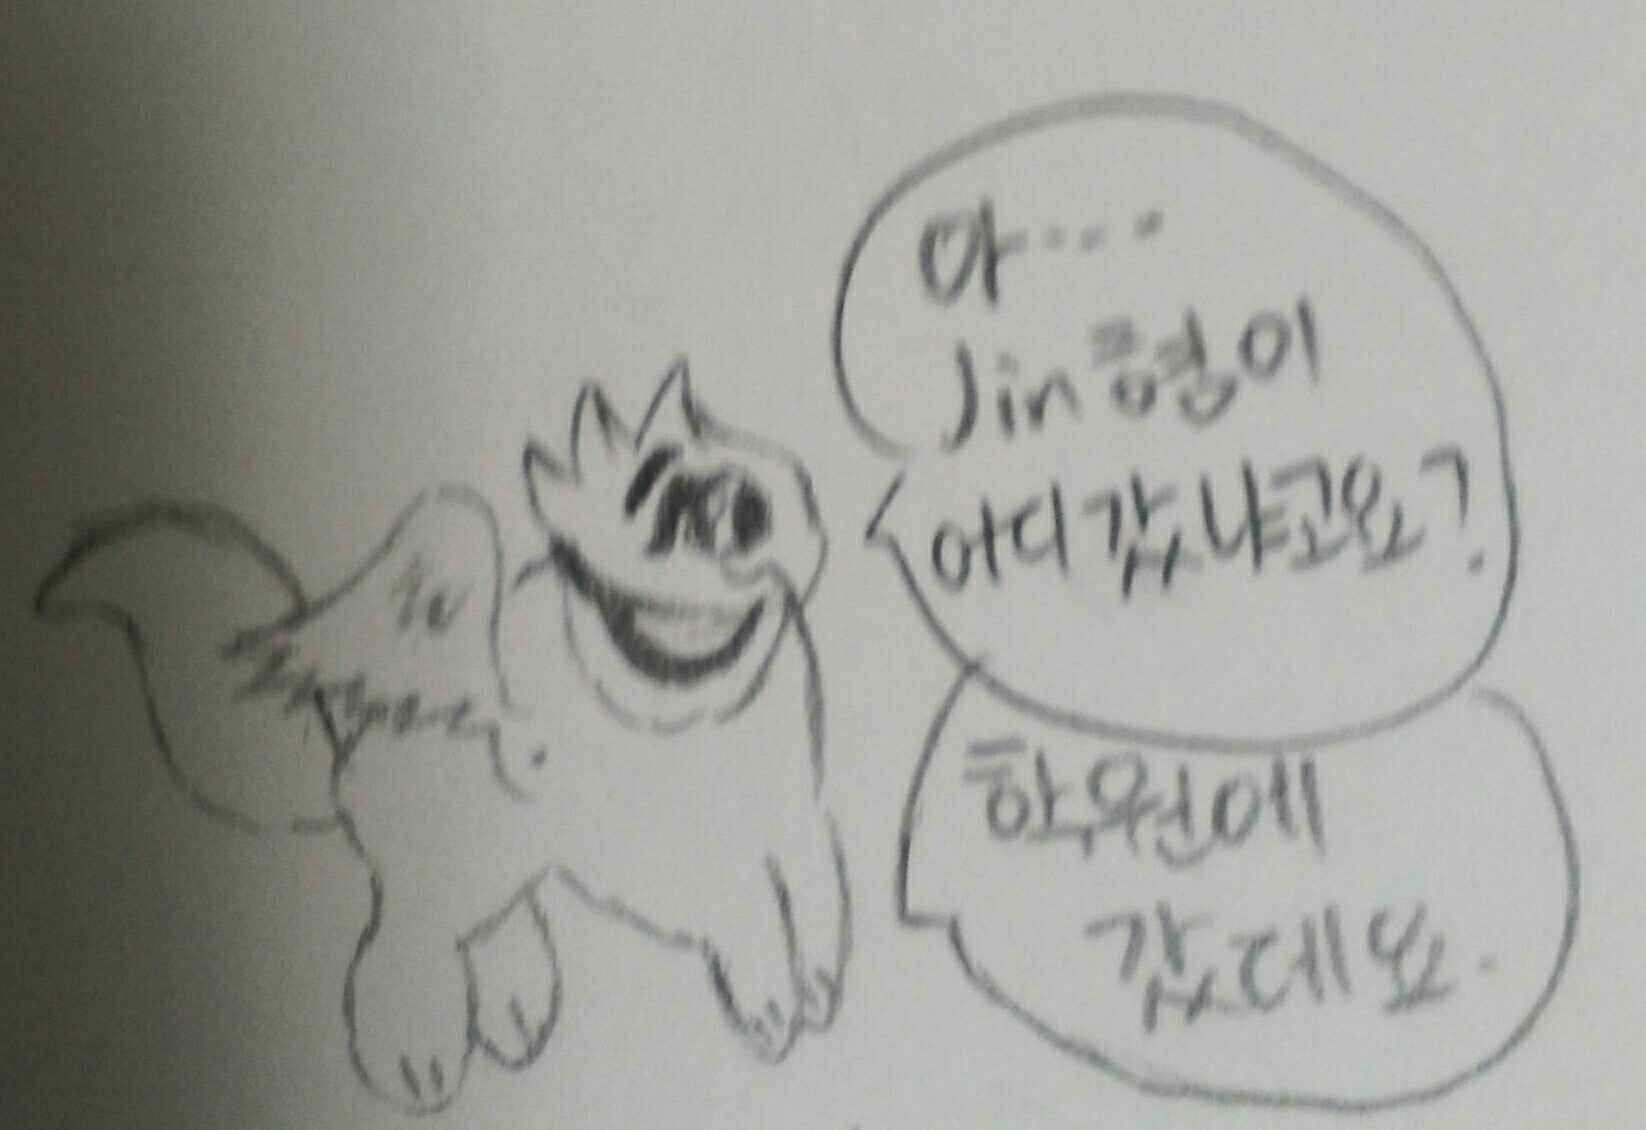 아····
Jin형이
어디갔냐고요?
학원에
갔데요.